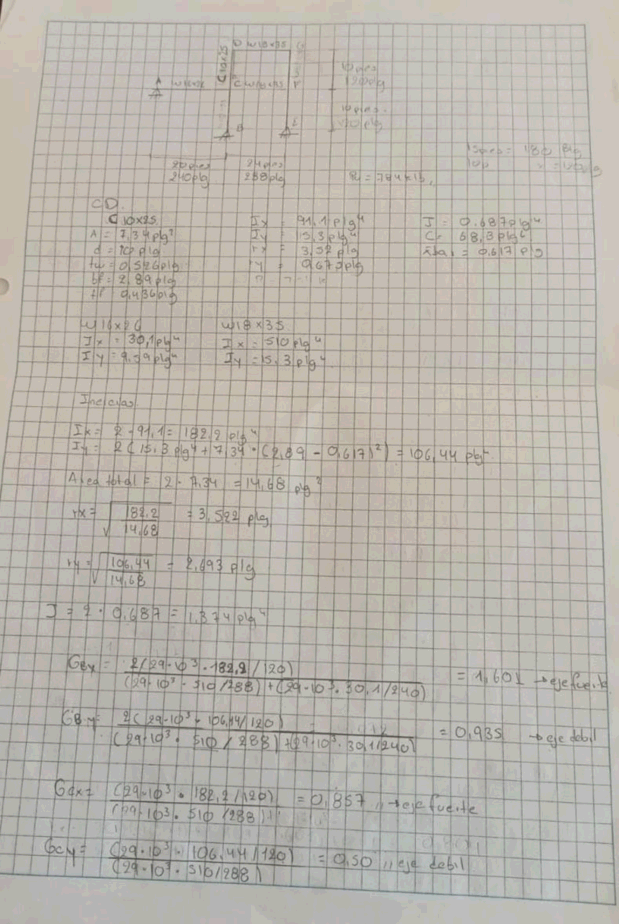 D W18x35
C 10x25
A W16x26 C W18x35 F
10pies
120plg
10pies
120plg
B E
20pies 24pies
240plg 288plg
15pies = 180 plg
CD.
C 10x25
A = 7,34 plg²
d = 10 plg
tw = 0,526plg
bf = 2,89plg
tf = 0,436plg
Ix = 91,1 plg⁴
Iy = 15,3 plg⁴
rx = 3,52 plg
ry = 0,675plg
J = 0.687plg⁴
C = 68,3plg⁶
= 0,617 plg
W16x26
Ix = 30,1plg⁴
Iy = 9,59 plg⁴
W18x35
Ix = 510 plg⁴
Iy = 15.3 plg⁴
Inercias
Ix = 2 · 91,1 = 182,2 plg⁴
Iy = 2(15,3 plg⁴ + 7,34 · (2,89 - 0,617)²) = 106,44 plg⁴
Area total = 2 · 7,34 = 14,68 plg²
rx = √ 182,2 / 14,68 = 3,522 plg
ry = √ 106,44 / 14,68 = 2,693 plg
J = 2 · 0,687 = 1,374 plg⁴
GBx = 2(29·10³ · 182,2/120) / (29·10³ · 510/288) + (29·10³ · 30,1/240) = 1,601 → eje fuerte
GBy = 2(29·10³ · 106,44/120) / (29·10³ · 510/288) + (29·10³ · 30,1/240) = 0,935 → eje debil
Gcx = (29·10³ · 182,2/120) / (29·10³ · 510/288) = 0,857 // → eje fuerte
Gcy = (29·10³ · 106,44/120) / (29·10³ · 510/288) = 0,50 // eje debil